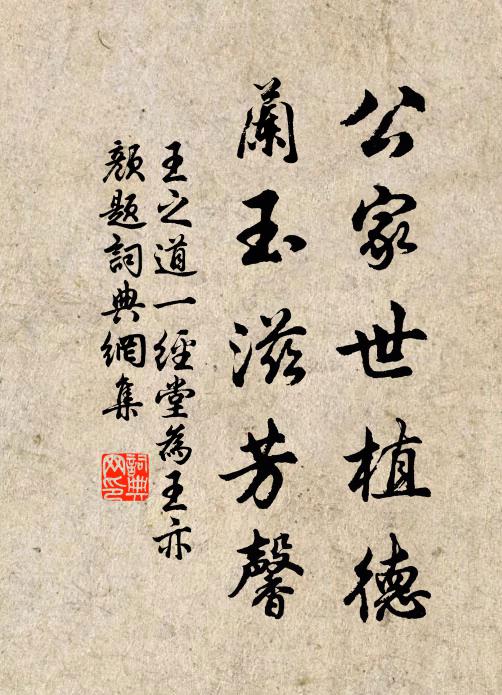 公家世植德
蘭玉滋芳馨
王之道一經堂為王亦
顏題詞典網集
詞典網印